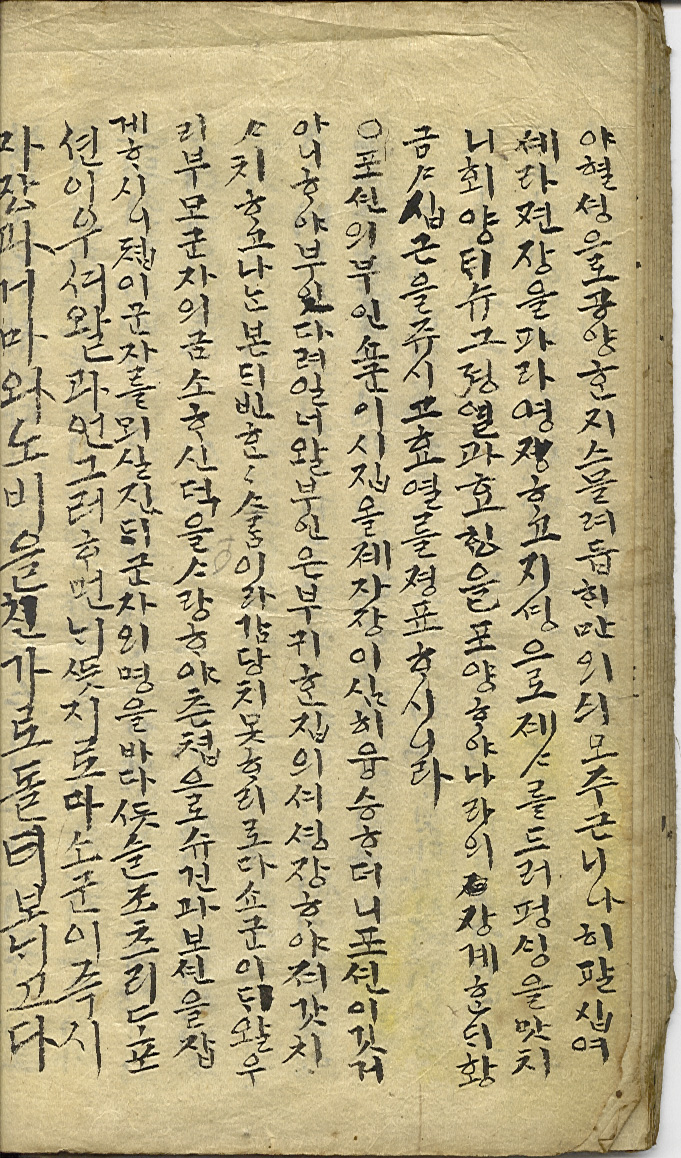 야 혈셩을로 공양ᄒᆞᆫ지 스믈려듧 ᄒᆡ만의 싀모 주근니 나히 팔십여
셰라 젼장을 파라 영장ᄒᆞ고 지셩으로 졔ᄉᆞ를 드러 평ᄉᆡᆼ을 맛치
니 회양 ᄐᆡ슈 그 졍열과 효ᄒᆡᆼ을 포양ᄒᆞ야 나라의 장계ᄒᆞᆫᄃᆡ 황
금 ᄉᆞ십 근을 쥬시고 효열를 졍표ᄒᆞ시니라
○포션의 부인 쇼군이 시집을 졔 자장이 심히 융승ᄒᆞ더니 포션이 깃거
아니ᄒᆞ야 부인다려 일너 왈 부인은 부귀ᄒᆞᆫ 집의셔 ᄉᆡᆼ장ᄒᆞ야 져갓치
ᄉᆞ치ᄒᆞ고 나ᄂᆞᆫ 본ᄃᆡ 빈ᄒᆞᆫᄒᆞᆫ ᄉᆞᄅᆞᆷ이라 감당치 못ᄒᆞ리로다 쇼군이 ᄃᆡ왈 우
리 부모 군자의 금소ᄒᆞ신 덕을 ᄉᆞ랑ᄒᆞ야 쳔쳡으로 슈건과 보션을 잡
게 ᄒᆞ시니 쳡이 군자를 뫼실진ᄃᆡ 군자의 명을 바다 ᄯᅳᆺ슬 조츠리ᄃᆞ 포
션이 우셔 왈 과연 그러ᄒᆞ면 ᄂᆡ ᄯᅳᆺ지로다 쇼군이 즉시
자장과 거마와 노비을 친가로 돌녀보ᄂᆡ고 다